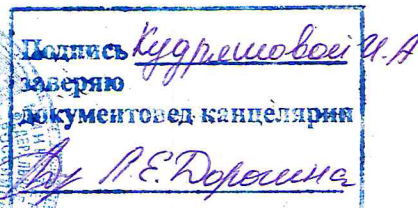 Подпись Кудряшовой И.А
заверяю
документовед канцелярии
Л.Е.Дорошина